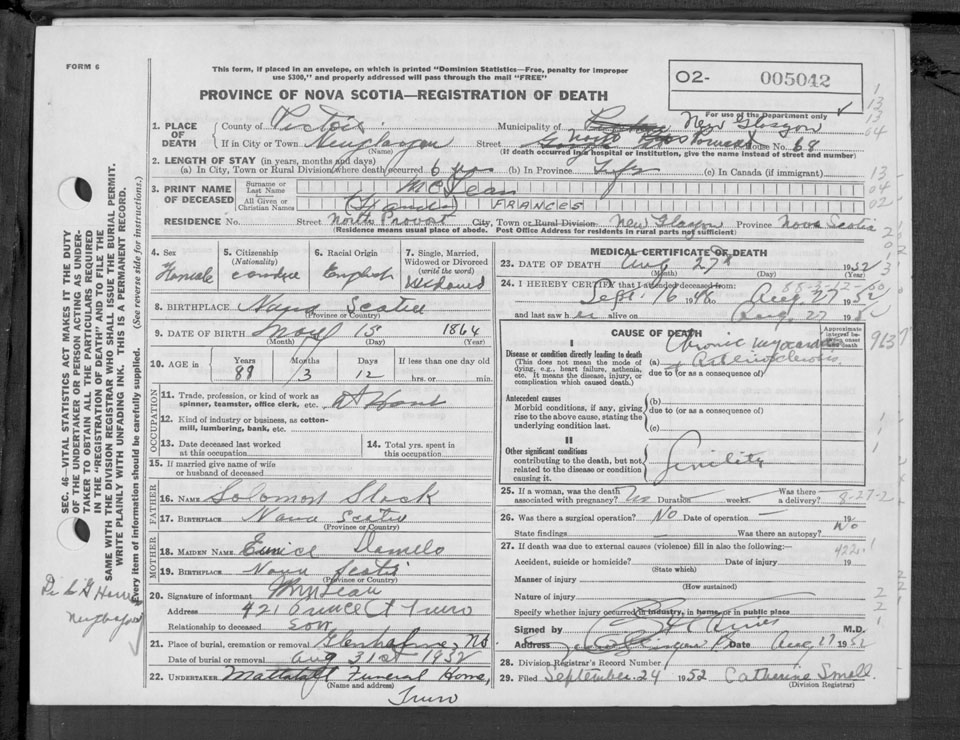 FORM 6
This form, if placed in an envelope, on which is printed "Dominion Statistics—Free, penalty for improper
use $300," and properly addressed will pass through the mail "FREE"
O2- 005042
For use of the Department only
PROVINCE OF NOVA SCOTIA—REGISTRATION OF DEATH
1. PLACE OF DEATH
County of Pictou Municipality of New Glasgow
If in City or Town New Glasgow Street House No. 68
(Name) (If death occurred in a hospital or institution, give the name instead of street and number)
2. LENGTH OF STAY (in years, months and days)
(a) In City, Town or Rural Division where death occurred 6 (b) In Province Life (c) In Canada (if immigrant)
3. PRINT NAME OF DECEASED
Surname or Last Name McLean
All Given or Christian Names FRANCES
RESIDENCE No. Street North Provost City, Town or Rural Division New Glasgow Province Nova Scotia
(Residence means usual place of abode. Post Office Address for residents in rural parts not sufficient)
4. Sex Female
5. Citizenship (Nationality)
6. Racial Origin English
7. Single, Married, Widowed or Divorced (write the word) Widowed
8. BIRTHPLACE Nova Scotia
(Province or Country)
9. DATE OF BIRTH May 15 1864
(Month) (Day) (Year)
10. AGE in Years 88 Months 3 Days 12 If less than one day old hrs. or min.
OCCUPATION
11. Trade, profession, or kind of work as spinner, teamster, office clerk, etc. At Home
12. Kind of industry or business, as cotton-mill, lumbering, bank, etc.
13. Date deceased last worked at this occupation
14. Total yrs. spent in this occupation
15. If married give name of wife or husband of deceased
FATHER
16. NAME Solomon Slack
17. BIRTHPLACE Nova Scotia
(Province or Country)
MOTHER
18. MAIDEN NAME Eunice
19. BIRTHPLACE Nova Scotia
(Province or Country)
20. Signature of informant
Address 421 Prince St Truro
Relationship to deceased Son
21. Place of burial, cremation or removal
Date of burial or removal Aug 31st 1952
22. UNDERTAKER Mattatall Funeral Home,
(Name and address)
Truro
MEDICAL CERTIFICATE OF DEATH
23. DATE OF DEATH Aug 27th 1952
(Month) (Day) (Year)
24. I HEREBY CERTIFY that I attended deceased from
Sept. 16 1948 Aug 27 1952
and last saw her alive on Aug. 27 195
CAUSE OF DEATH
Approximate interval between onset and death
I
Disease or condition directly leading to death
(This does not mean the mode of dying, e.g., heart failure, asthenia, etc. It means the disease, injury, or complication which caused death.)
(a) Chronic
due to (or as a consequence of)
Antecedent causes
Morbid conditions, if any, giving rise to the above cause, stating the underlying condition last.
(b)
due to (or as a consequence of)
(c)
II
Other significant conditions
contributing to the death, but not related to the disease or condition causing it. Senility
25. If a woman, was the death associated with pregnancy? No Duration weeks. Was there a delivery?
8-27-2
26. Was there a surgical operation? No Date of operation — 19
State findings — Was there an autopsy? No
27. If death was due to external causes (violence) fill in also the following:—
422.1
Accident, suicide or homicide? Date of injury 19
(State which)
Manner of injury
(How sustained)
Nature of injury
Specify whether injury occurred in industry, in home, or in public place
Signed by M.D.
Address Date Aug 27 1952
28. Division Registrar's Record Number
29. Filed September 24 1952 Catherine Small
(Division Registrar)
SEC. 46—VITAL STATISTICS ACT MAKES IT THE DUTY
OF THE UNDERTAKER OR PERSON ACTING AS UNDER-
TAKER TO OBTAIN ALL THE PARTICULARS REQUIRED
IN THE "REGISTRATION OF DEATH" AND TO FILE THE
SAME WITH THE DIVISION REGISTRAR WHO SHALL ISSUE THE BURIAL PERMIT.
WRITE PLAINLY WITH UNFADING INK. THIS IS A PERMANENT RECORD.
Every item of information should be carefully supplied. (See reverse side for instructions.)